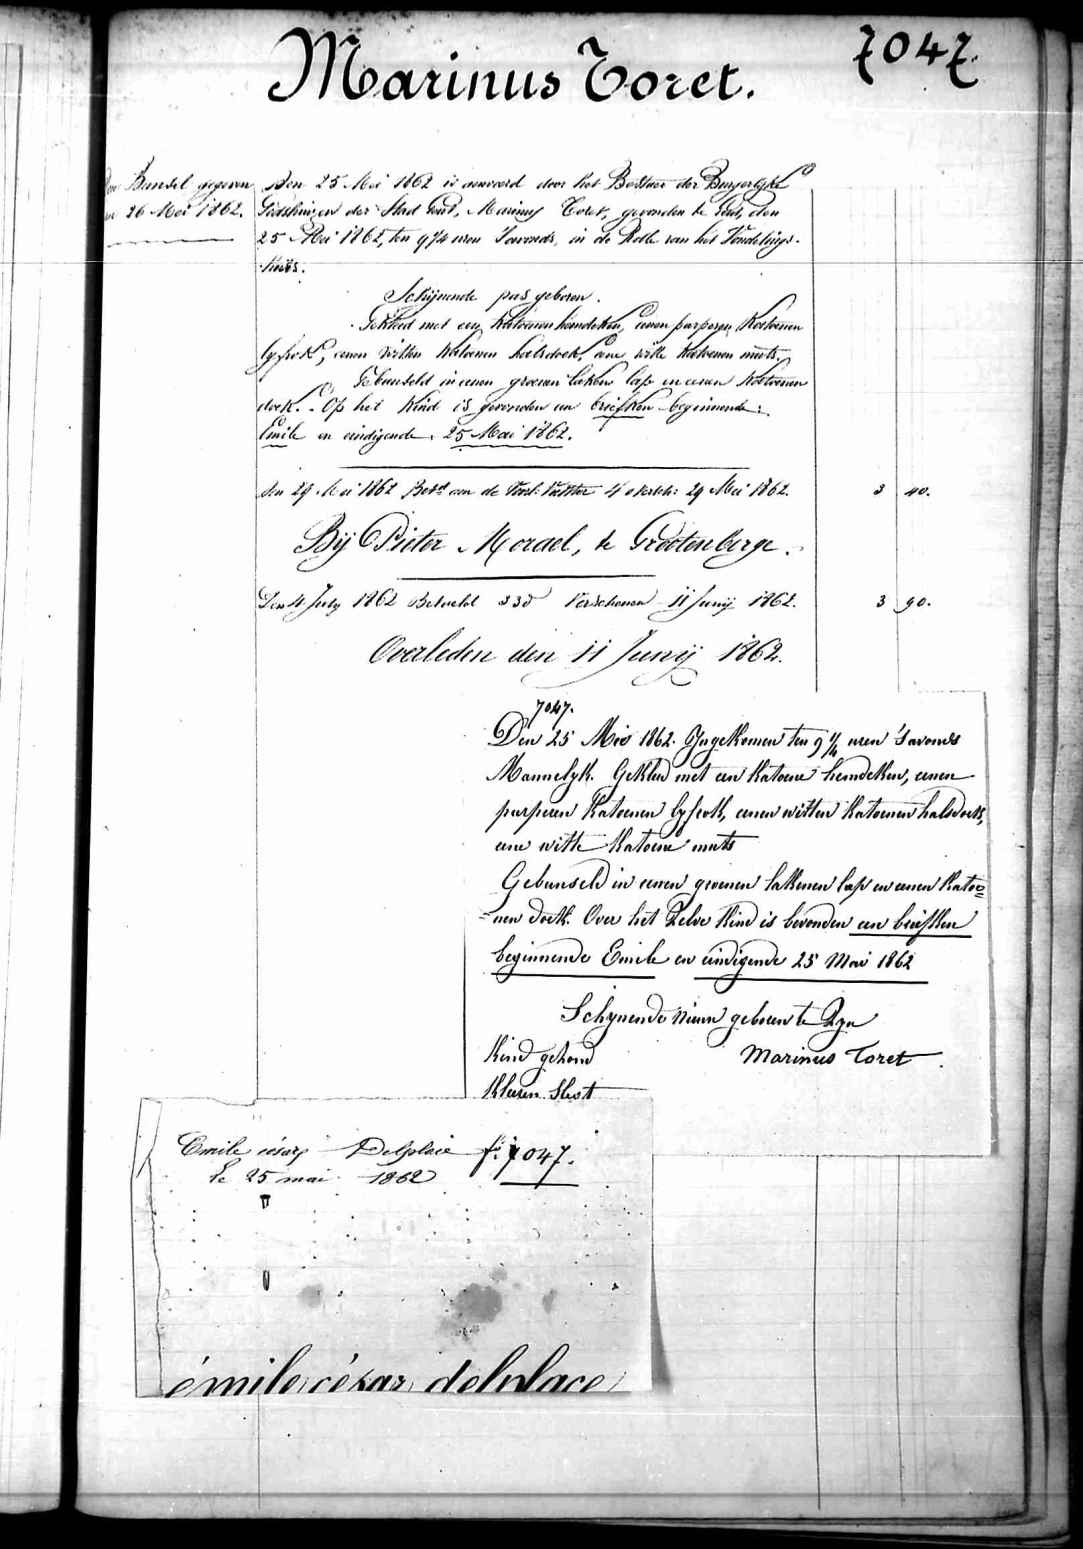 Marinus Toret.
7047.
Den Bunsel gegeven
den 26 Mei 1862.
Den 25 Mei 1862 is aenveerd door het Bestuer der Burgerlyke
Godshuizen der Stad Gend, Marinus Toret, gevonden te Gend, den
25 Mei 1862, ten 9 1/4 uren 's avonds, in de Rolle van het Vondelings-
huis.
Schijnende pas geboren.
Gekleed met een katoenen hemdeken, eenen purperen katoenen
lyfrok, eenen witten katoenen halsdoek, eene witte katoenen muts.
Gebunseld in eenen groenen laken lap en eenen katoenen
doek. - Op het kind is gevonden een briefken beginnende:
Emile en eindigende: 25 Mai 1862.
Den 29 Mei 1862 Betd aen de 29 Mei 1862. 3 40.
Bij Pieter Moraël, te Grootenberge.
Den 4 July 1862 Betaeld 33d Verschenen 11 Junij 1862. 3 90.
Overleden den 11 Junij 1862.
7047.
Den 25 Mei 1862. Ingekomen ten 9 1/4 uren 's avonds
Mannelyk. Gekleed met een katoene hemdeken, eenen
purperen katoenen lyfrok, eenen witten katoenen halsdoek,
eene witte katoene muts
Gebunseld in eenen groenen lakenen lap en eenen katoe=
=nen doek. Over het zelve kind is bevonden een briefken
beginnende Emile en eindigende 25 Mai 1862
Schynende nieuw geboren te zyn
Kind gezond
Marinus Toret.
Kleeren Slest
Emile césar Delplace fo. 7047.
le 25 mai 1862
émile césar delplace